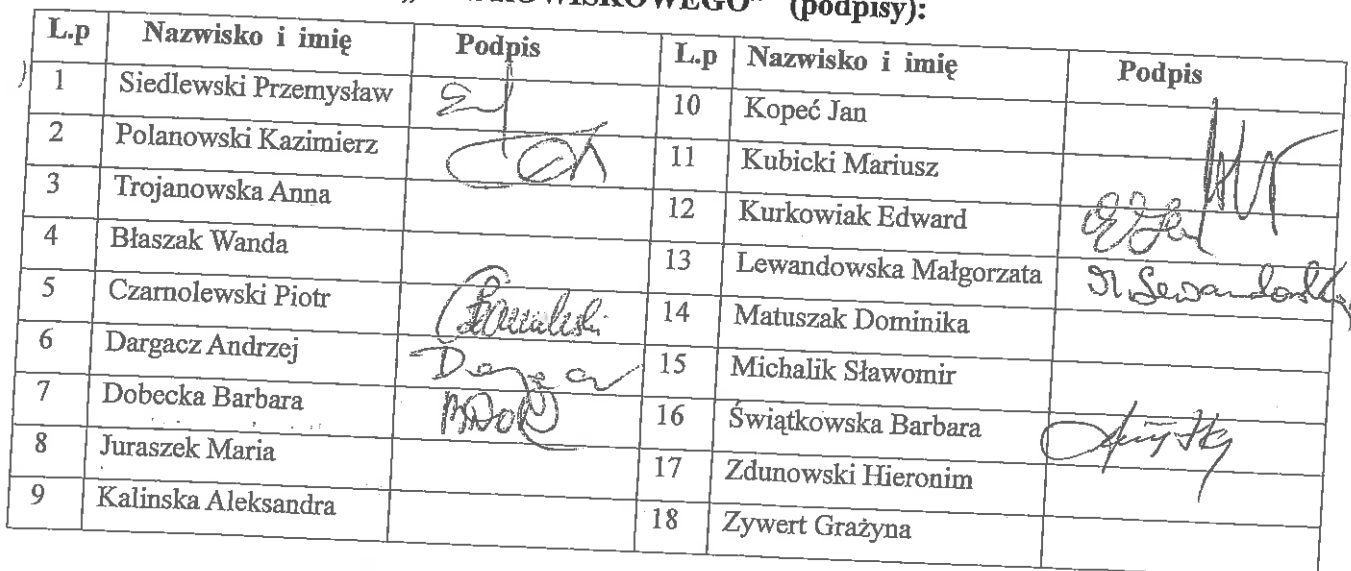 KOWISKOWEGO" (podpisy):
L.p Nazwisko i imię Podpis L.p Nazwisko i imię Podpis
1 Siedlewski Przemysław 10 Kopeć Jan
2 Polanowski Kazimierz 11 Kubicki Mariusz
3 Trojanowska Anna 12 Kurkowiak Edward
4 Błaszak Wanda 13 Lewandowska Małgorzata M. Lewandowska
5 Czarnolewski Piotr 14 Matuszak Dominika
6 Dargacz Andrzej 15 Michalik Sławomir
7 Dobecka Barbara 16 Świątkowska Barbara
8 Juraszek Maria 17 Zdunowski Hieronim
9 Kalinska Aleksandra 18 Zywert Grażyna